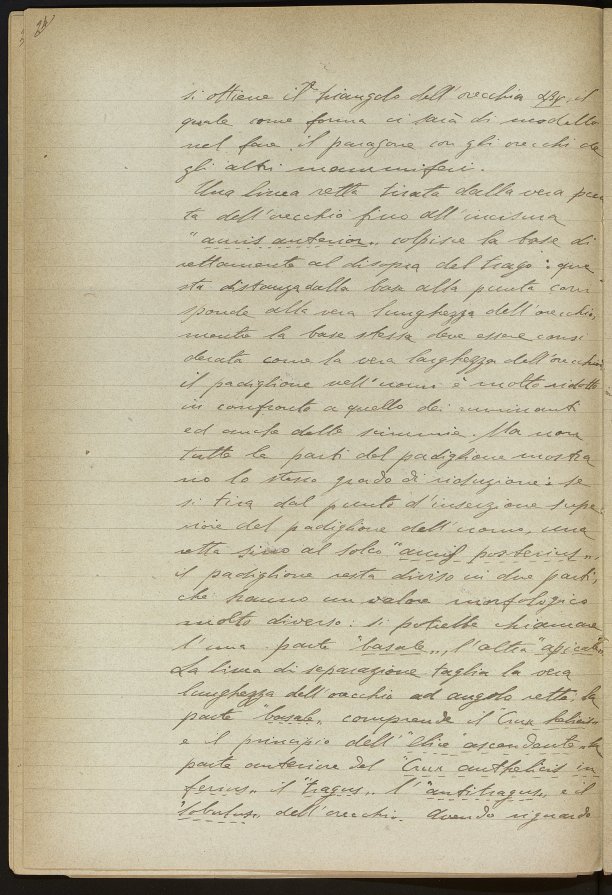 24
si ottiene il triangolo dell'orecchia il
quale come forma ci sarà di modello
nel fare il paragone con gli orecchi de
gli altri mammiferi.
Una linea retta tirata dalla vera pun
ta dell'orecchio fino all'incisura
"auris anterior„ colpisce la base di
rettamente al disopra del trago: que
sta distanza dalla base alla punta corri
sponde alla vera lunghezza dell'orecchio,
mentre la base stessa deve essere consi
derata come la vera larghezza dell'orecchio
il padiglione nell'uomo è molto ridotto
in confronto a quello dei ruminanti
ed anche delle scimmie. Ma non
tutte le parti del padiglione mostra
no lo stesso grado di riduzione: se
si tira dal punto d'inserzione supe
riore del padiglione dell'uomo, una
retta sino al solco "auris posterius„,
il padiglione resta diviso in due parti,
che hanno un valore morfologico
molto diverso: si potrebbe chiamare
l'una parte "basale„, l'altra "apicale„
La linea di separazione taglia la vera
lunghezza dell'orecchio ad angolo retto: la
parte "basale„ comprende il "Crux helicis„
e il principio dell'"elice ascendente„ la
parte anteriore del "Crux anthelicis in
ferius„ il "tragus„ l'"antitragus„ e il
"lobulus„ dell'orecchio. Avendo riguardo